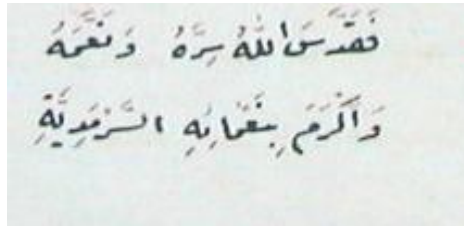 فَقَدَّسَ اللّٰهُ سِرَّهُ وَنَعَّمَهُ
وَاَكْرَمَ بِنَعْمَائِهِ السَّرْمَدِيَّةِ